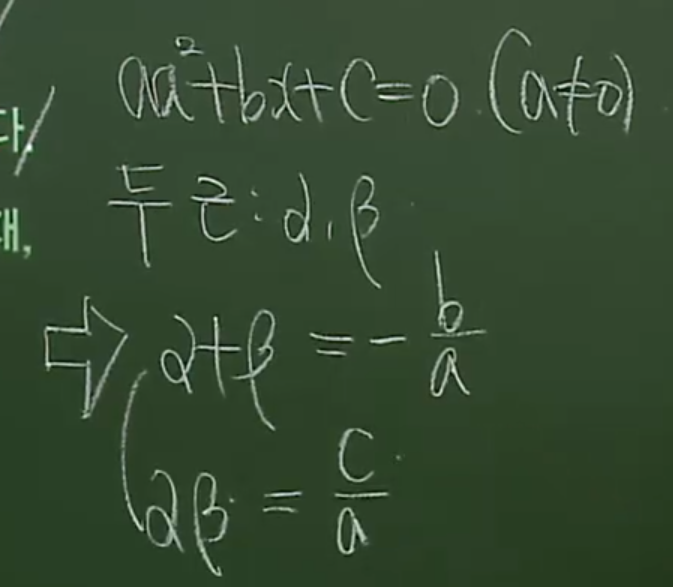 다.
ax²+bx+c=0 (a≠0)
두 근: α, β
때,
⇨ α+β = - b/a
αβ = c/a